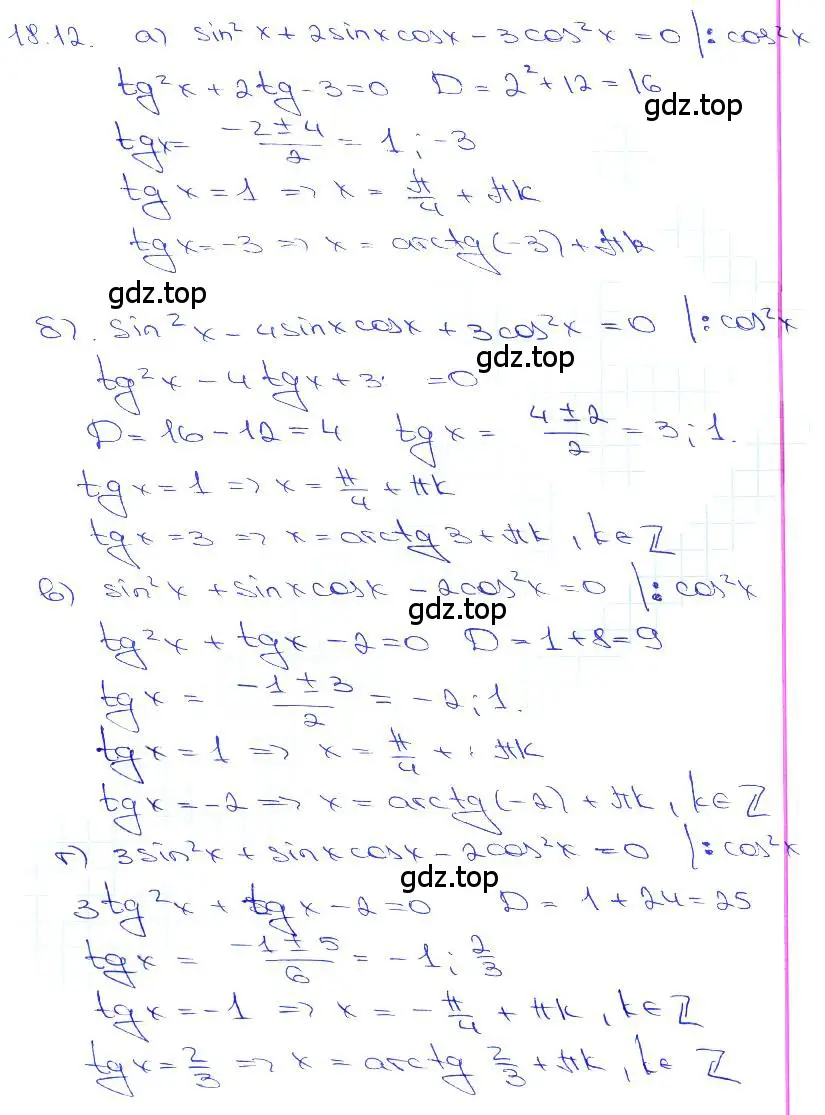 18.12. а) sin² x + 2sinx cosx - 3cos²x = 0 |: cos²x
tg²x + 2tg - 3 = 0 D = 2² + 12 = 16
gdz.top
tgx = (-2 ± 4)/2 = 1; -3
tg x = 1 => x = π/4 + πk
tg x = -3 => x = arctg(-3) + πk
gdz.top
б). sin² x - 4sinx cosx + 3cos²x = 0 |: cos²x
gdz.top
tg²x - 4tgx + 3 = 0
D = 16 - 12 = 4 tg x = (4 ± 2)/2 = 3; 1.
tg x = 1 => x = π/4 + πk
tg x = 3 => x = arctg 3 + πk, k ∈ ℤ
в) sin²x + sinx cosx - 2cos²x = 0 |: cos²x
gdz.top
tg²x + tgx - 2 = 0 D = 1 + 8 = 9
tg x = (-1 ± 3)/2 = -2; 1.
tg x = 1 => x = π/4 + πk
tg x = -2 => x = arctg(-2) + πk, k ∈ ℤ
г) 3sin²x + sinx cosx - 2cos²x = 0 |: cos²x
gdz.top
3tg²x + tgx - 2 = 0 D = 1 + 24 = 25
tg x = (-1 ± 5)/6 = -1; 2/3
tg x = -1 => x = -π/4 + πk, k ∈ ℤ
tg x = 2/3 => x = arctg 2/3 + πk, k ∈ ℤ